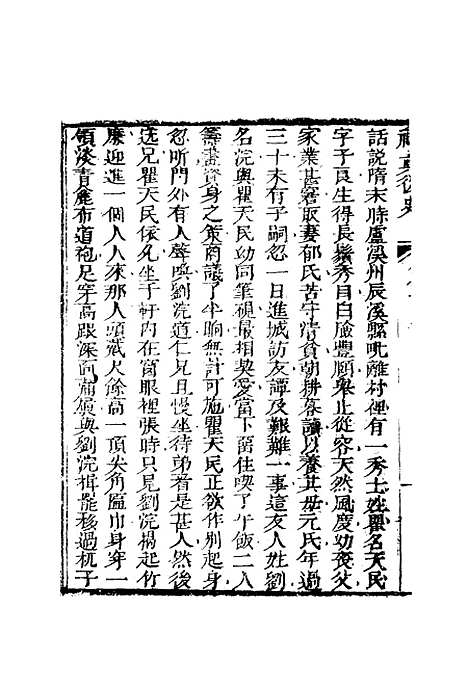 禪真後史
話說隋末時盧溪州辰溪縣毗離村裡有一秀士姓瞿名天民
字子良生得長鬚秀目白臉豐頤舉止從容天然風度幼喪父
家業甚窘取妻郁氏苦守清貧朝耕暮讀以養其母元氏年過
三十未有子嗣忽一日進城訪友譚及艱難一事這友人姓劉
名浣與瞿天民幼同筆硯最相契愛當下留住喫了午飯二人
籌畫資身之策商議了半晌無計可施瞿天民正欲作別起身
忽听門外有人聲喚劉浣道仁兄且慢坐待弟看是甚人然後
送兄瞿天民依允坐于軒內在窗眼裡張時只見劉浣揭起竹
簾迎進一個人人來那人頭戴尺餘高一頂尖角匾巾身穿一
領淡青麄布道袍足穿高跟深面蒲履與劉浣揖罷移過杌子